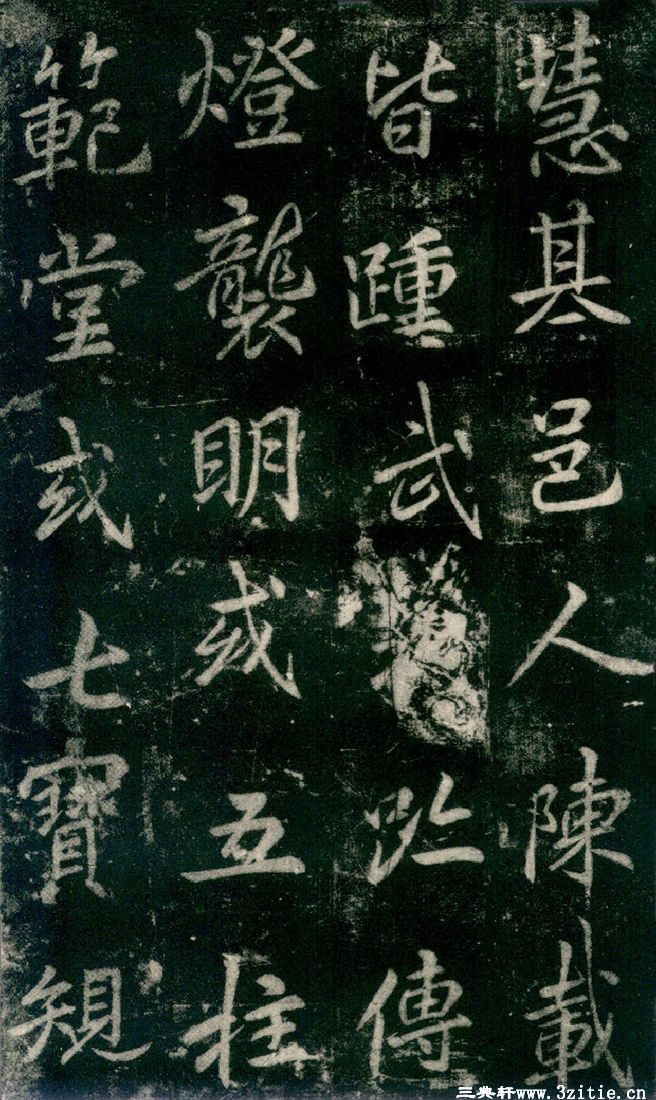 慧基邑人陳載
皆踵武趾傳
燈襲明或五柱
範堂或七寶規
三典轩www.3zitie.cn